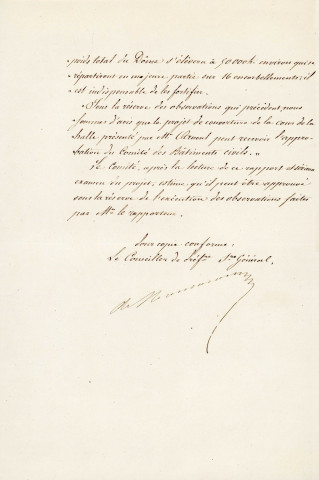 „ poids total du Dôme s'élèvera à 50000k environ qui se
„ répartiront en majeure partie sur 16 encorbellements; il
est indispensable de les fortifier.
„ Sous la réserve des observations qui précèdent, nous
„ sommes d'avis que le projet de couverture de la cour de la
„ halle présenté par Mr. peut recevoir l'appro-
„ bation du Comité des Bâtiments civils. „
Le Comité, après la lecture de ce rapport et
examen du projet, estime qu'il peut être approuvé
sous la réserve de l'exécution des observations faites
par Mr. le rapporteur.
Pour copie conforme:
Le Conseiller de Préfre. Sre. Général.